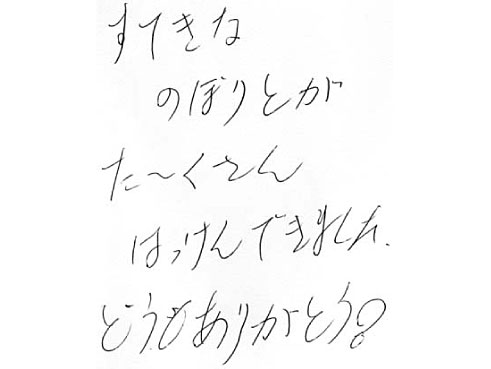 すてきな
のぼりとが
た〜くさん
はっけんできました.
どうもありがとう?